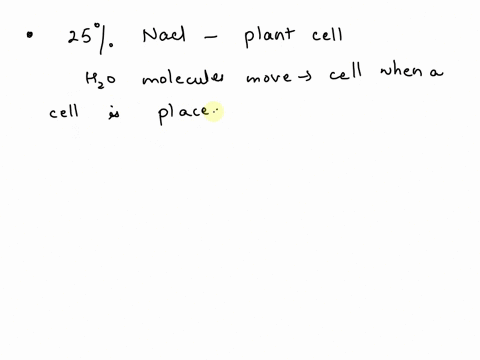 • 25%. Nacl - plant cell
H₂O molecules move → cell when a
cell is place